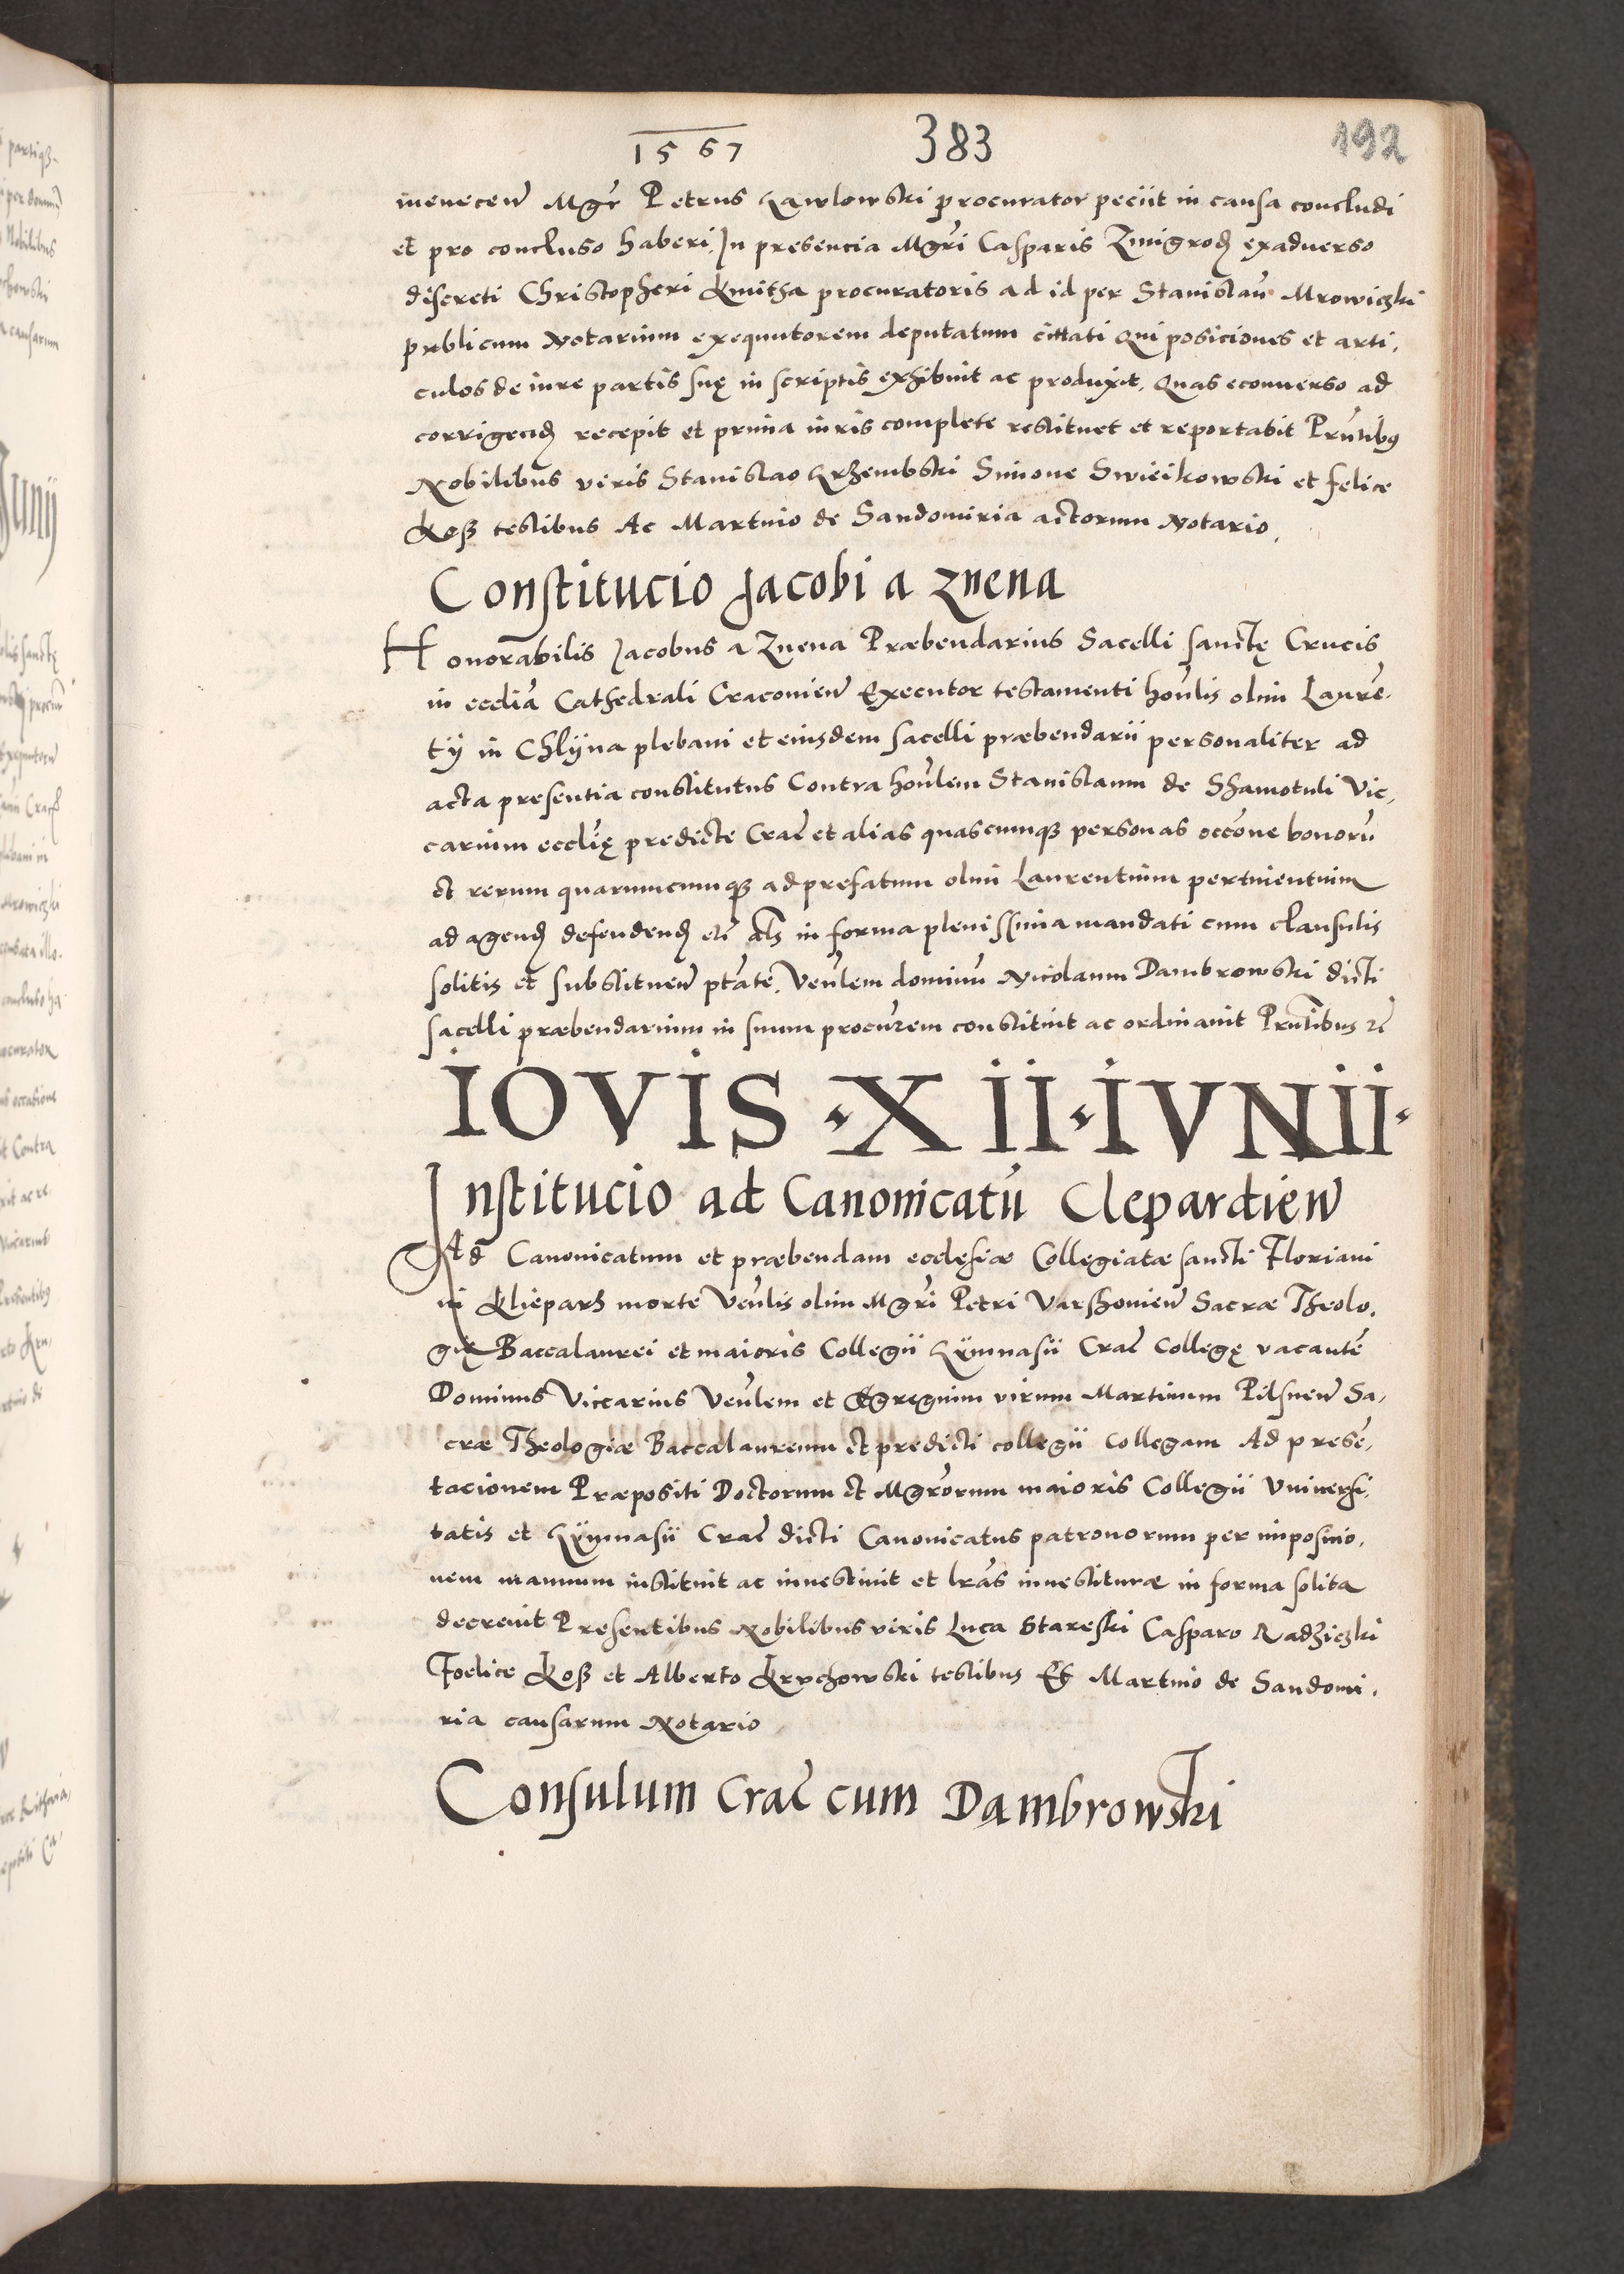 1567 383 192
Mgr̃ Petrus Gawlowski procurator peciit in causa concludi
et pro concluso haberi. In presencia Mgr̃i Casparis Zmigroḍ exaduerso
discreti Christopheri Kmitha procuratoris ad id per Stanislaũ Mrowiczki
publicum Notarium exequutorem deputatum cittati Qui posiciones et arti,
culos de iure partis suę in scriptis exhibuit ac produxit, Quas econuerso ad
corrigenḍ recepit et prima iuris complete restituet et reportabit Prñtibꝰ
Nobilibus viris Stanislao Krzembski Simone Swieikowski et felice
Koß testibus Ac Martino de Sandomiria actorum Notario,
Constitucio Jacobi a Znena
Honorabilis Jacobus a Znena Præbendarius Sacelli sanctę Crucis
in ecclia Cathedrali Cracovieñ Executor testamenti hoñlis olim Laurẽ,
tij in Chlyna plebani et eiusdem sacelli præbendarii personaliter ad
acta presentia constitutus Contra hoñlem Stanislaum de Shamotuli Vic,
carium ecclię predicte Crac̃ et alias quascumqꝫ personas occõne bonorũ
et rerum quarumcumqꝫ ad prefatum olim Laurentium pertinentium
ad agenḍ defendenḍ etc̃ als̃ in forma plenissima mandati cum clausulis
solitis et substitueñ ptãte. Veñlem dominũ Nicolaum Dambrowski dicti
sacelli præbendarium in suum procur̃em constituit ac ordinauit Prñtibus ꝛc̃
IOVIS · XII · IVNII ·
Institucio ad Canonicatũ Clepardieñ
Ad Canonicatum et præbendam ecclesiæ Collegiatæ sancti Floriani
in Klieparz morte Veñlis olim Mgr̃i Petri Varshouieñ Sacræ Theolo,
gię Baccalaurei et maioris Collegii Gymnasii Crac̃ Collegę vacantẽ
Dominus Viccarius Veñlem et Egregium virum Martinum Pilsneñ Sa,
cræ Theologiæ Baccalaureum et predicti collegii collegam Ad presẽ,
tacionem Præpositi Doctorum et Mgr̃orum maioris Collegii Vniuersi,
tatis et Gymnasii Crac̃ dicti Canonicatus patronorum per imposicio,
nem manuum instituit ac inuestiuit et lrãs inuestituræ in forma solita
decreuit Presentibus Nobilibus viris Luca Stareski Casparo Radziczki
Foelice Koß et Alberto Krychowski testibus Et Martino de Sandomi,
ria causarum Notario
Consulum Crac̃ cum Dambrowski